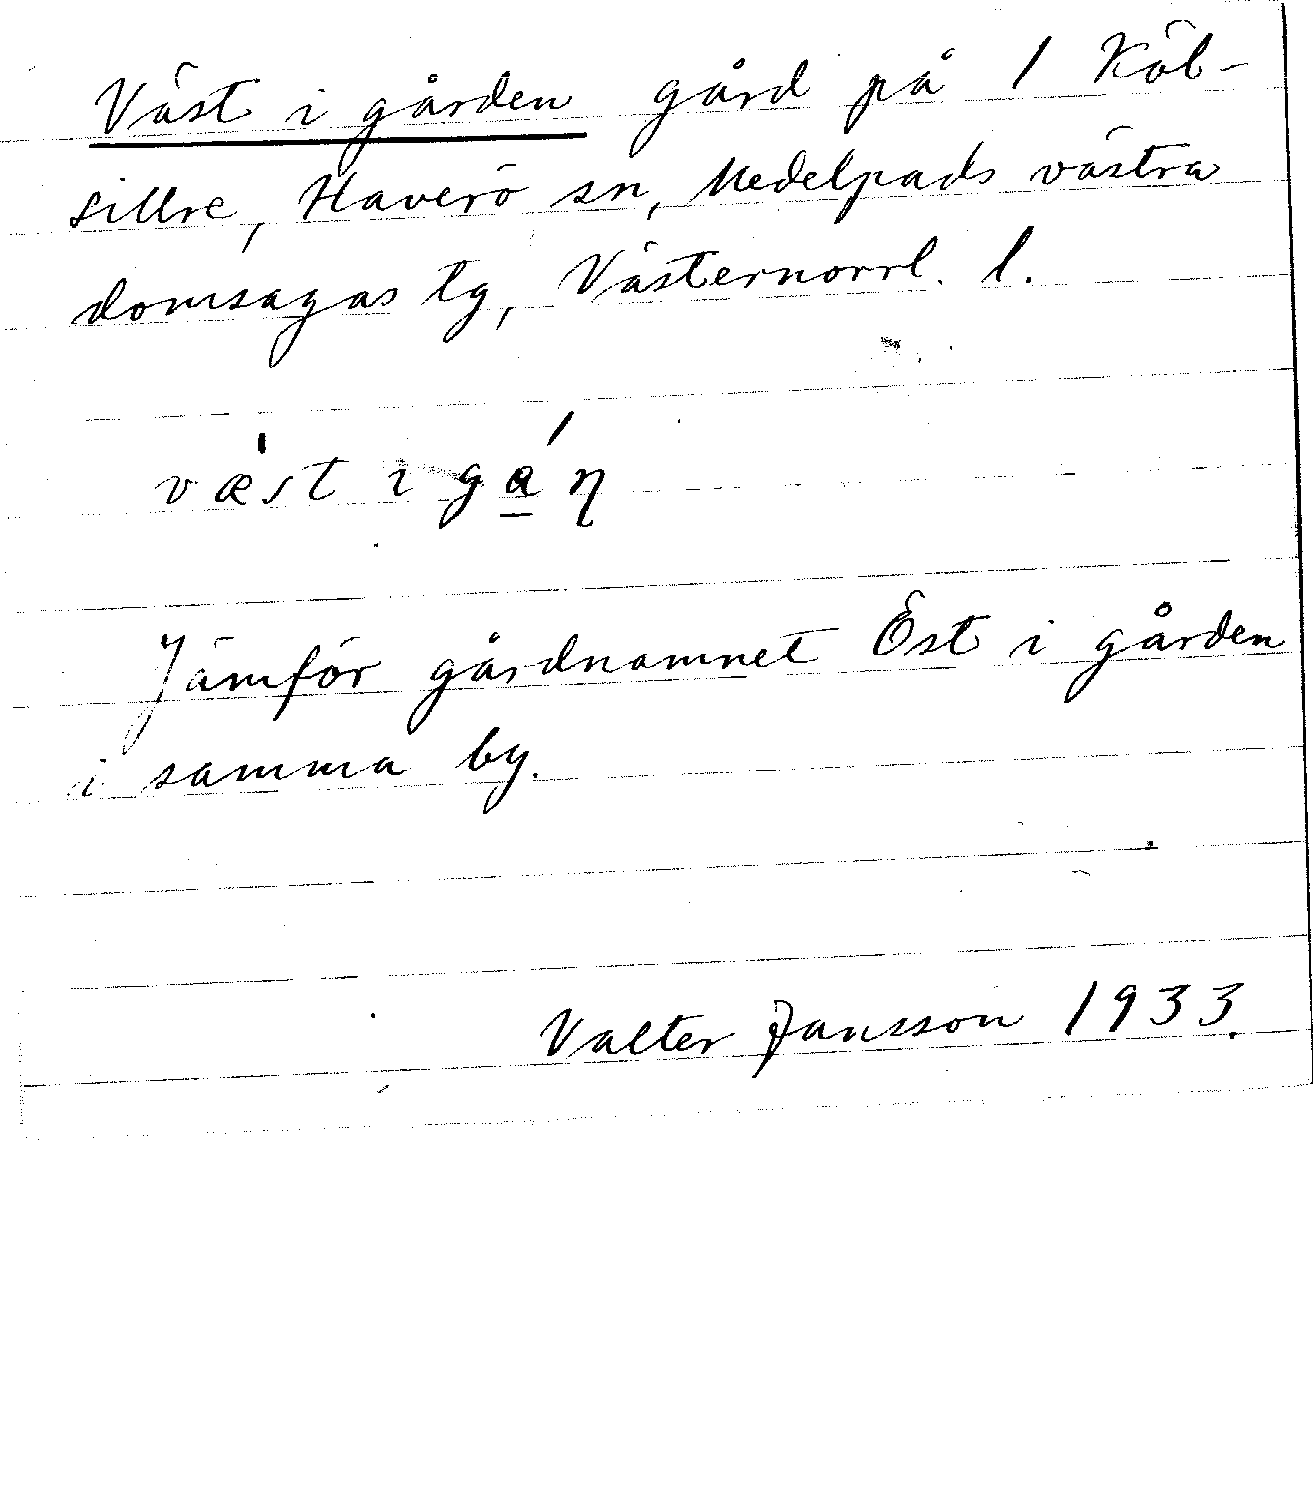 Väst i gården gård på 1 Köl-
sillre, Haverö sn, Medelpads västra
domsagas tg, Västernorrl. l.
væ̍st i gá̱ η
Jämför gårdnamnet Öst i gården
i samma by.
Valter Jansson 1933.